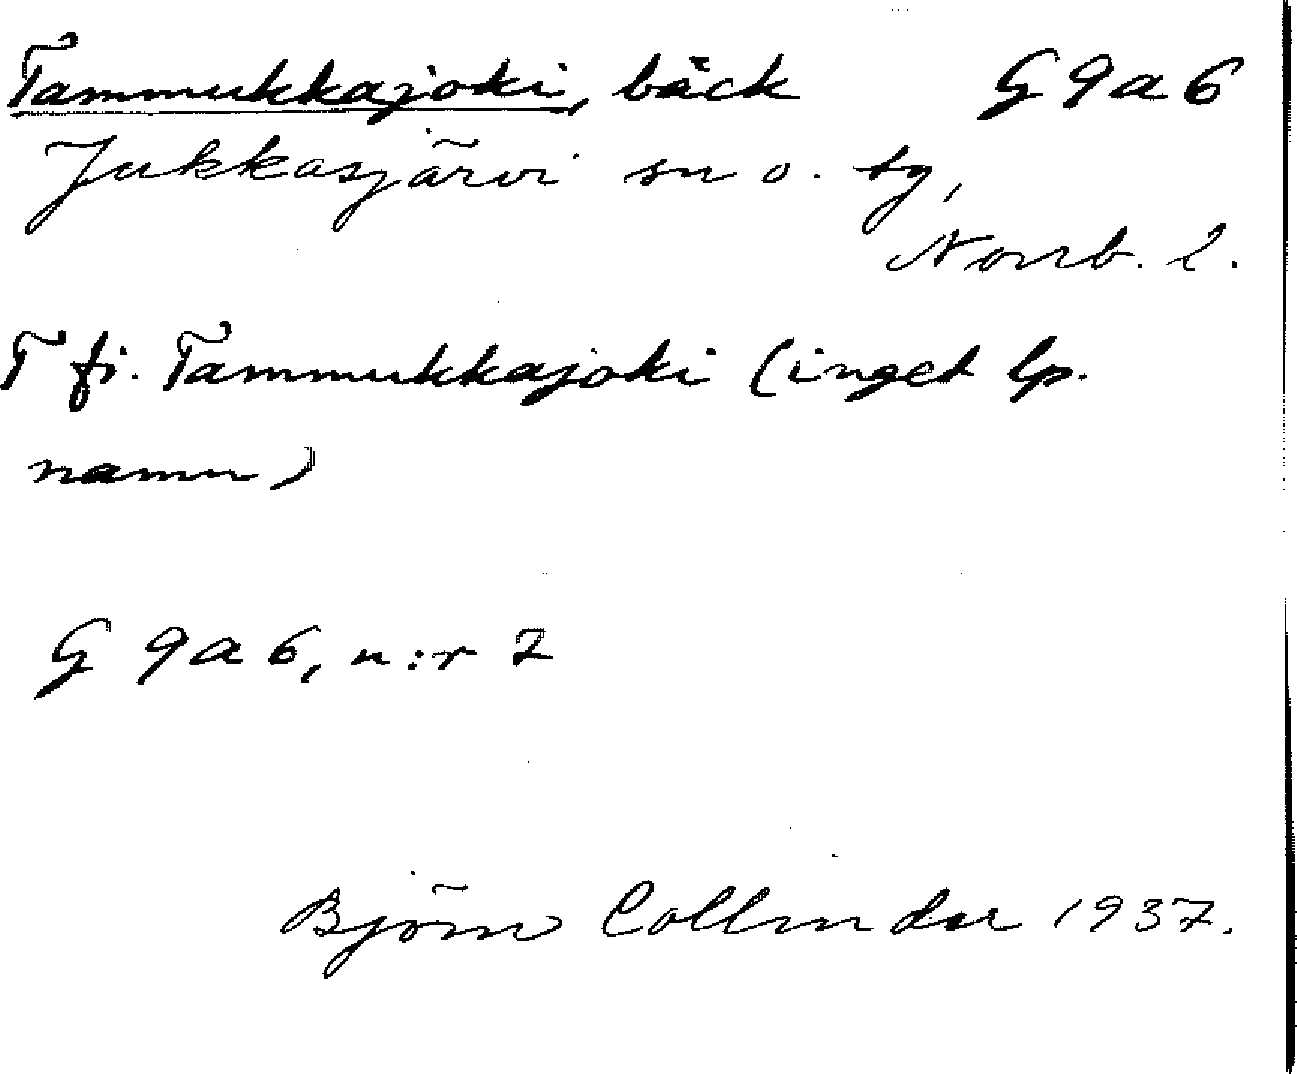 Tammukkajoki, bäck G9a6
Jukkasjärvi sn o. tg,
Norrb. l.
T fi. Tammukkajoki (inget lp.
namn)
G 9a6, n:r 7
Björn Collinder 1937.